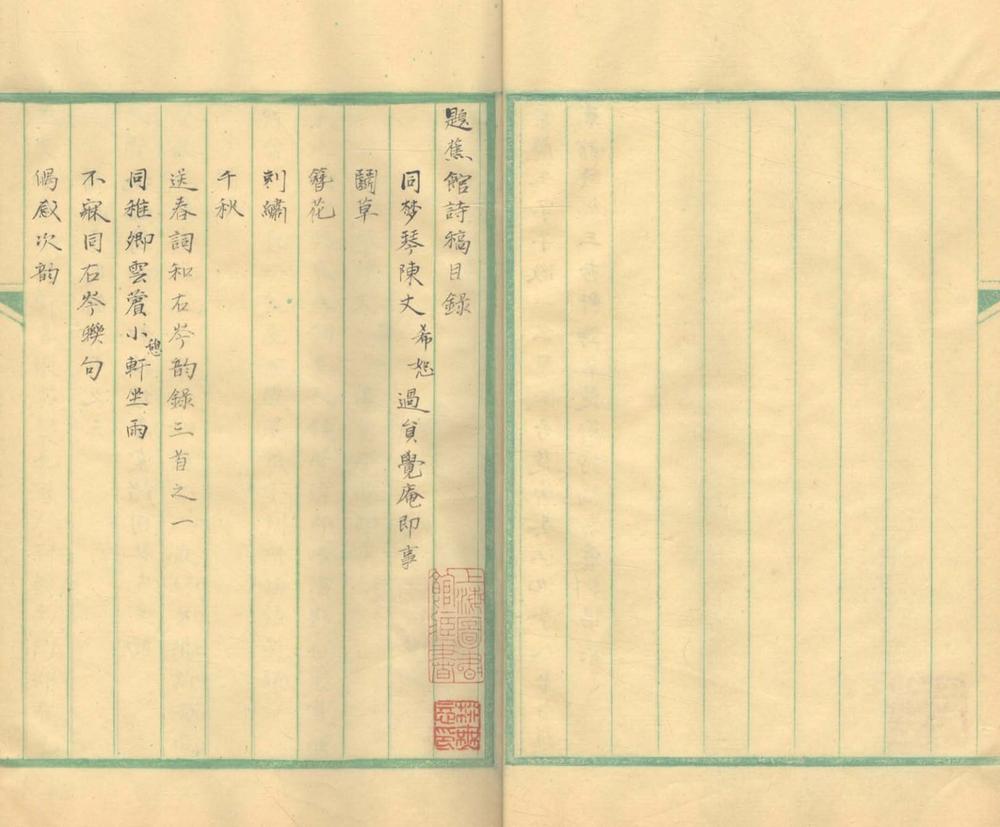 題蕉館詩稿目錄
同夢琴陳丈希恕過貟覺庵即事
鬭草
簪花
刺繡
千秋
送春詞和右岑韵錄三首之一
同稚卿雲簣小憩軒坐雨
不寐同右岑聯句
偶感次韵
上海圖書館藏書